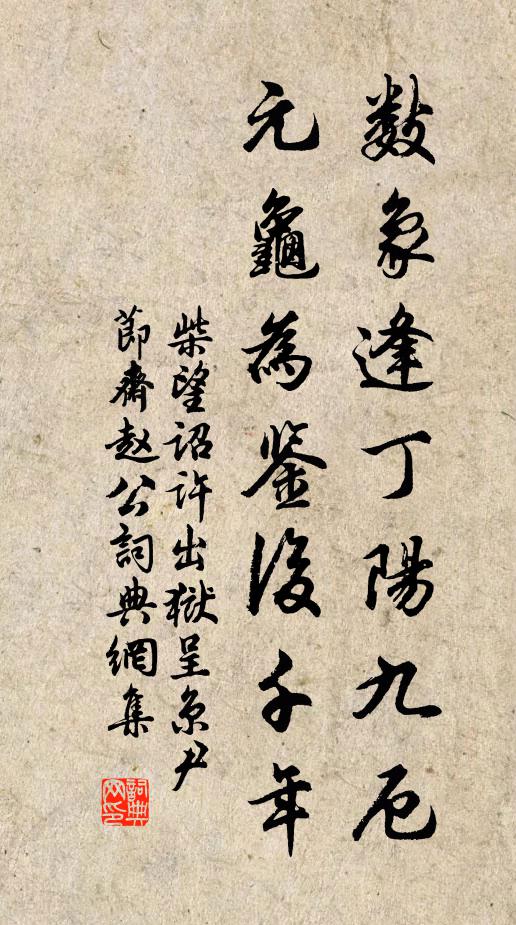 數象逢丁陽九厄
元龜為鑒後千年
柴望詔許出獄呈京尹
節齋趙公詞典網集
詞典网印